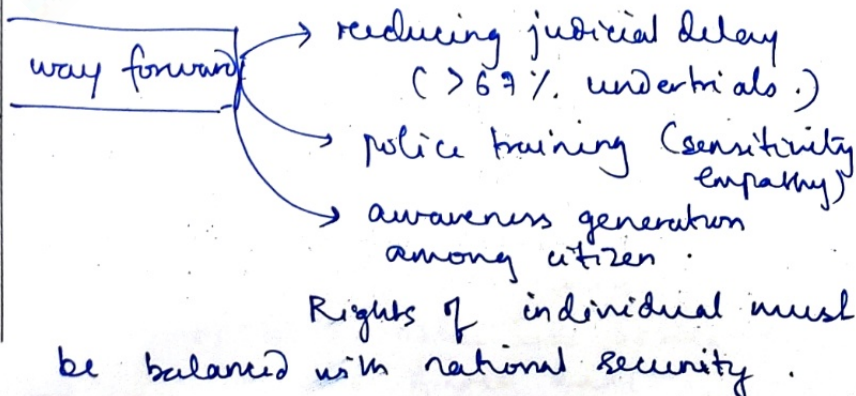 way forward
→ reducing judicial delay
(>67% undertrials.)
→ police training (sensitivity
empathy)
→ awareness generation
among citizen.
Rights of individual must
be balanced with national security.